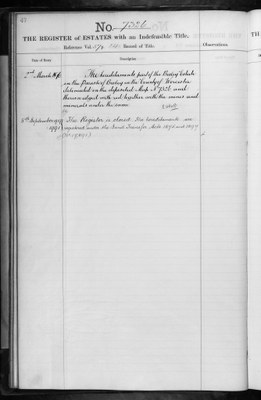 No. 7326
THE REGISTER of ESTATES with an Indefeasible Title.
Reference Vol. Record of Title.
Observations
Date of Entry. Description
2nd March The hereditaments part of the Estate
in the Parish of in the County of Worcester
delineated on the deposited Map No 7326 and
thereon edged with red together with the mines and
minerals under the same
6th September The Register is closed. The hereditaments are
registered under the Land Transfer Acts 1875 and 1897